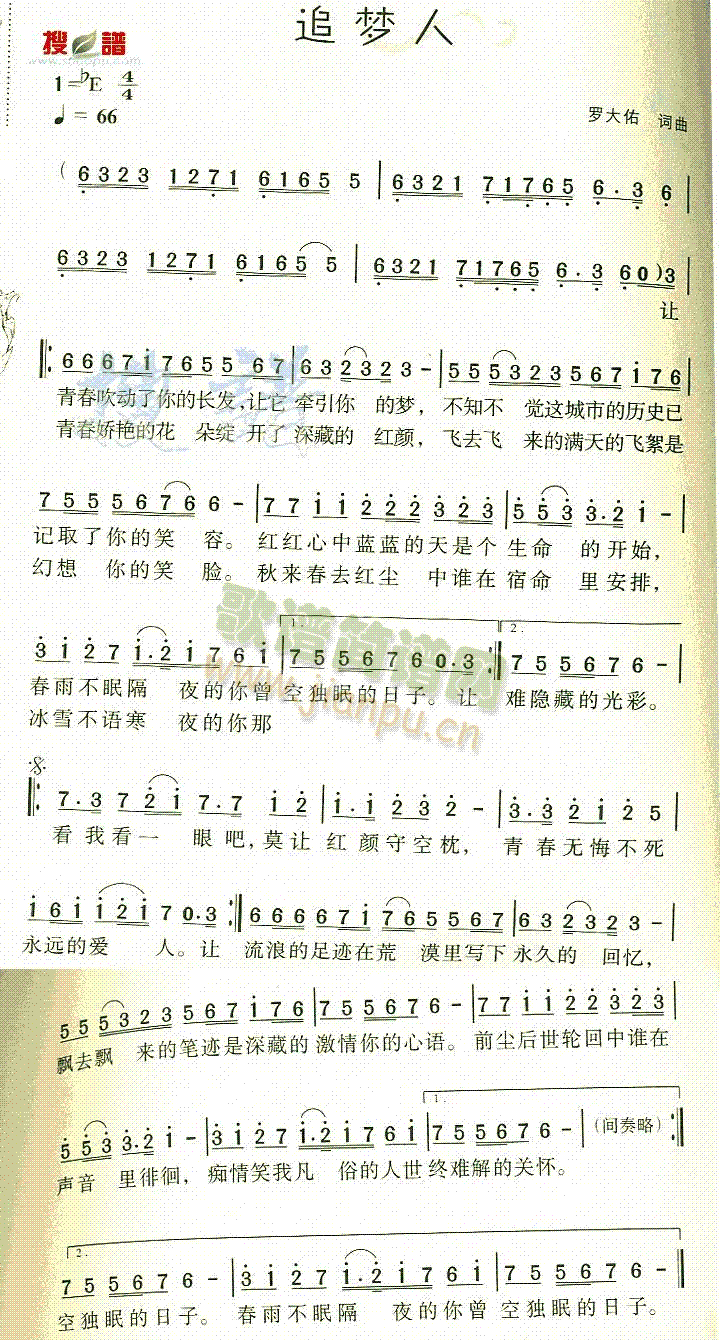 追梦人
搜谱
1=♭E 4/4
♩= 66
罗大佑 词曲
(6323 1271 6165 5 | 6321 71765 6.3 6 |
6323 1271 6165 5 | 6321 71765 6.3 60)3 |
让
‖: 666717655 67 | 632323- | 55532356 7176 |
青春吹动了你的长发,让它 牵引你 的梦, 不知不 觉这城市的历史已
青春娇艳的花 朵绽 开了 深藏的 红颜, 飞去飞 来的满天的飞絮是
7555676 6 - | 77 11 222 323 | 553 3.21 - |
记取了你的笑 容。 红红心中蓝蓝的天是个 生命 的开始,
幻想 你的笑 脸。 秋来春去红尘 中谁在 宿命 里安排,
歌谱简谱网
www.jianpu.cn
3127 1.21761 | 1. 7555676 0.3 :‖ 2. 755676 - |
春雨不眠隔 夜的你曾 空独眠的日子。 让 难隐藏的光彩。
冰雪不语寒 夜的你那
‖: 7.3 7 21 7.7 12 | 1.1 232 - | 3.3 2125 |
看我看一 眼吧,莫让 红颜守空枕, 青春无悔不死
161 121 7 0.3 :‖ 6666671 765567 | 632323 - |
永远的爱 人。让 流浪的足迹在荒 漠里写下 永久的 回忆,
555323567176 | 755676 - | 7711 22323 |
飘去飘 来的笔迹是深藏的 激情你的心语。 前尘后世轮回中谁在
553 3.21 - | 3127 1.21761 | 1. 755676 - | (间奏略) :‖
声音 里徘徊, 痴情笑我凡 俗的人世 终难解的关怀。
2. 755676 - | 3127 1.21761 | 755676 - ‖
空独眠的日子。 春雨不眠隔 夜的你曾 空独眠的日子。